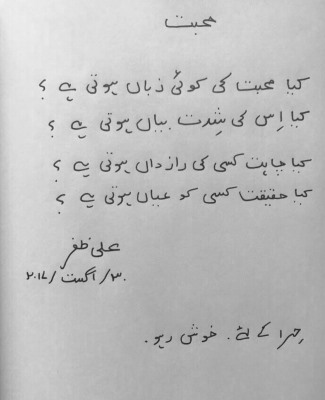 محبت
کیا محبت کی کوئی زباں ہوتی ہے ؟
کیا اِس کی شِدت بیاں ہوتی ہے ؟
کیا چاہت کسی کی راز داں ہوتی ہے ؟
کیا حقیقت کسی کو عیاں ہوتی ہے ؟
علی ظفر
۳۰/اگست/۲۰۱۷
کے لئے . خوش رہو .